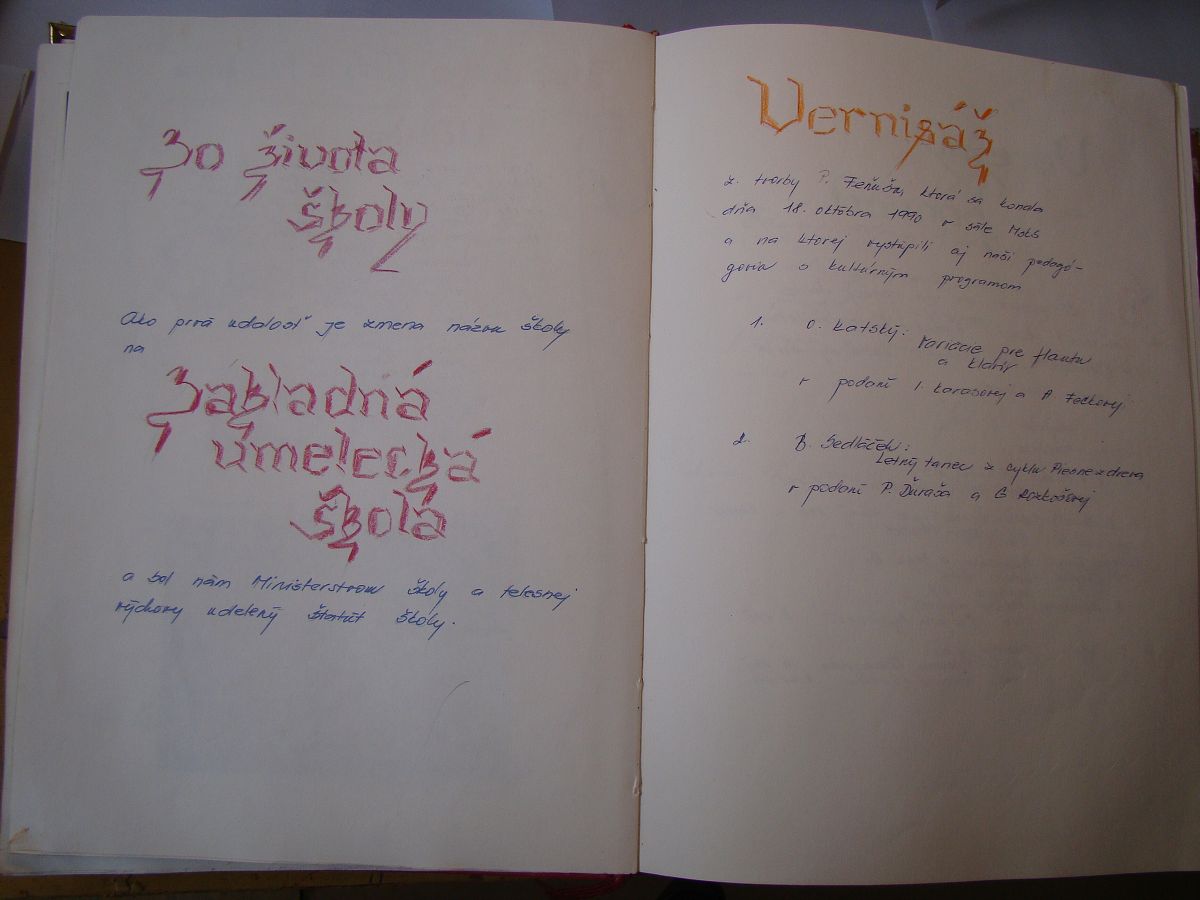 Zo života
školy
Ako prvá udalosť je zmena názvu školy
na
Základná
umelecká
škola
a bol nám Ministerstvom školy a telesnej
výchovy udelený štatút školy.
Vernisáž
z. tvorby P. Feňuša, ktorá sa konala
dňa 18. októbra 1990 v sále MsKS
a na ktorej vystúpili aj naši pedagó-
govia s kultúrnym programom
1. O. Katský:
Variácie pre flautu
a klavír
v podaní I. Karasovej a A. Feckovej
2. B. Sedláček:
Letný tanec z cyklu Piesne z dreva
v podaní P. Ďuraša a G Rozkošovej